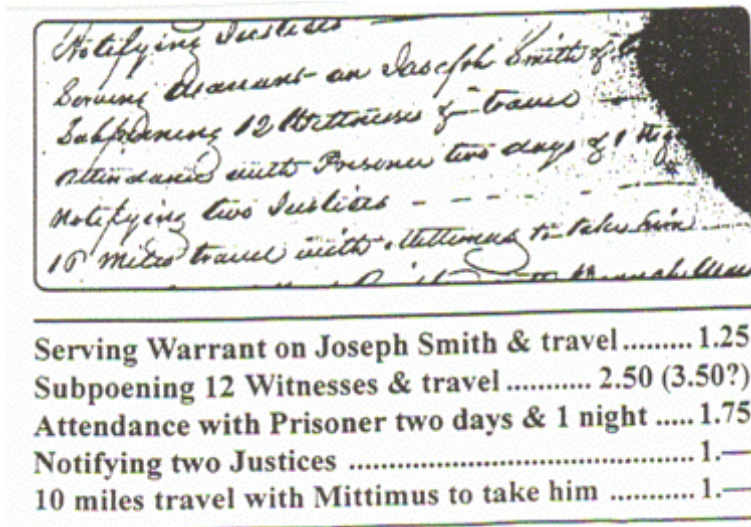 Notifying Justices
Serving Warrant on Joseph Smith &
Subpoening 12 Wittnesses & travel
Attendance with Prisoner two days & 1 Nig
Notifying two Justices - - - -
10 miles travel with Mittimus to take him
Serving Warrant on Joseph Smith & travel......... 1.25
Subpoening 12 Witnesses & travel ........... 2.50 (3.50?)
Attendance with Prisoner two days & 1 night ..... 1.75
Notifying two Justices ........................................... 1.—
10 miles travel with Mittimus to take him ........... 1.—